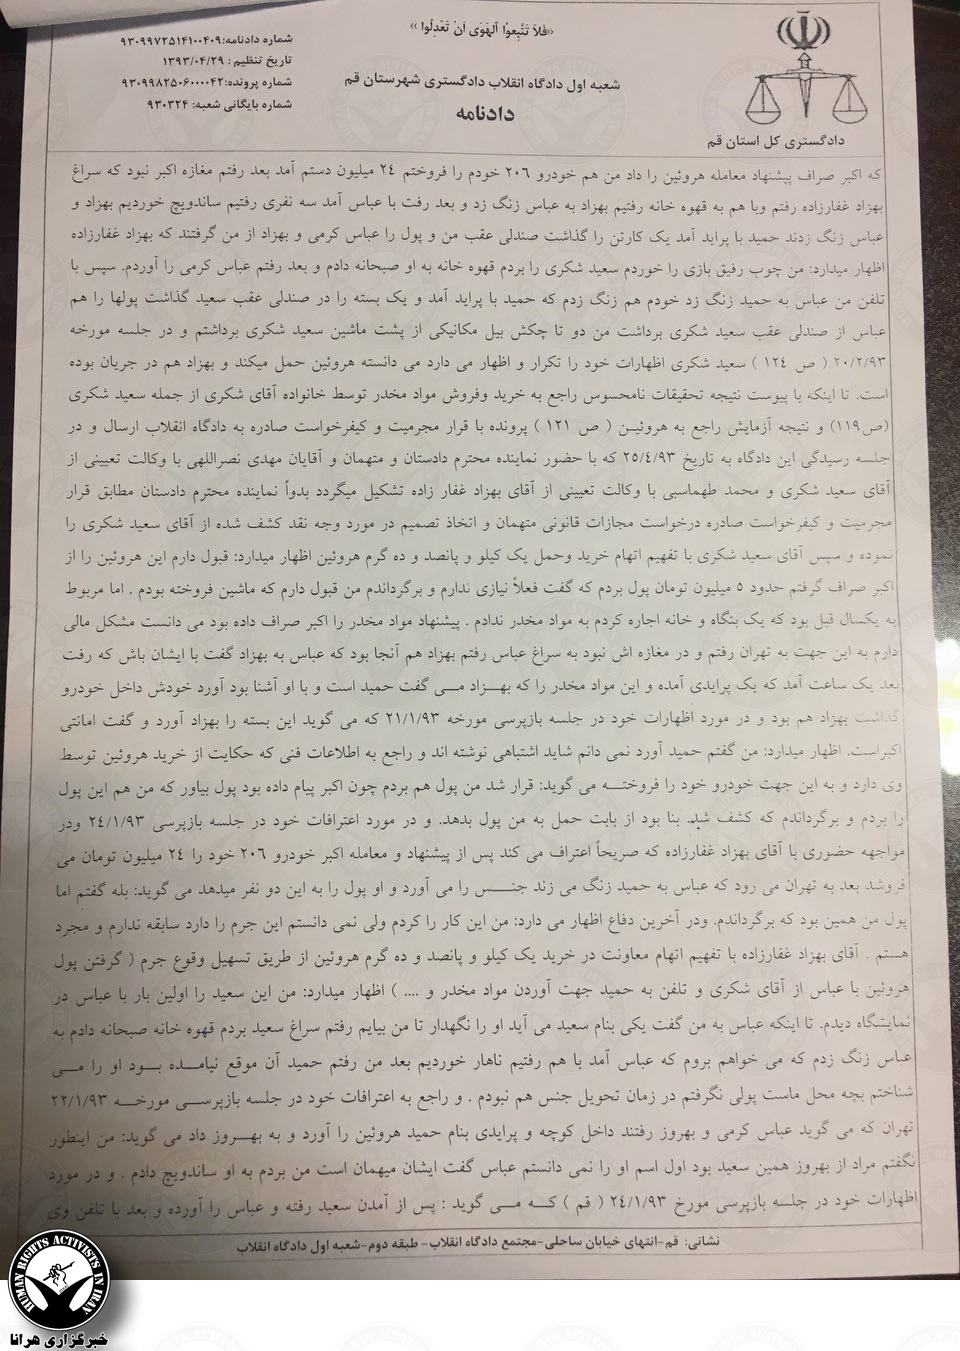 «فَلاَ تَتَّبِعوُا اَلهَوَى اَنْ تَعْدِلُوا»
شماره دادنامه:۹۳۰۹۹۷۲۵۱۴۱۰۰۴۰۹
تاریخ تنظیم : ۱۳۹۳/۰۴/۲۹
شماره پرونده:۹۳۰۹۹۸۲۵۰۶۰۰۰۰۴۲
شماره بایگانی شعبه: ۹۳۰۳۲۴
شعبه اول دادگاه انقلاب دادگستری شهرستان قم
دادنامه
دادگستری کل استان قم
که اکبر صراف پیشنهاد معامله هروئین را داد من هم خودرو ۲۰۶ خودم را فروختم ۲٤ میلیون دستم آمد بعد رفتم مغازه اکبر نبود که سراغ
بهزاد غفارزاده رفتم وبا هم به قهوه خانه رفتیم بهزاد به عباس زنگ زد و بعد رفت با عباس آمد سه نفری رفتیم ساندویچ خوردیم بهزاد و
عباس زنگ زدند حمید با پراید آمد یک کارتن را گذاشت صندلی عقب من و پول را عباس کرمی و بهزاد از من گرفتند که بهزاد غفارزاده
اظهار میدارد: من چوب رفیق بازی را خوردم سعید شکری را بردم قهوه خانه به او صبحانه دادم و بعد رفتم عباس کرمی را آوردم. سپس با
تلفن من عباس به حمید زنگ زد خودم هم زنگ زدم که حمید با پراید آمد و یک بسته را در صندلی عقب سعید گذاشت پولها را هم
عباس از صندلی عقب سعید شکری برداشت من دو تا چکش بیل مکانیکی از پشت ماشین سعید شکری برداشتم و در جلسه مورخه
۲۰/۲/۹۳ ( ص ۱۲٤ ) سعید شکری اظهارات خود را تکرار و اظهار می دارد می دانسته هروئین حمل میکند و بهزاد هم در جریان بوده
است. تا اینکه با پیوست نتیجه تحقیقات نامحسوس راجع به خرید وفروش مواد مخدر توسط خانواده آقای شکری از جمله سعید شکری
(ص۱۱۹) و نتیجه آزمایش راجع به هروئین ( ص ۱۲۱ ) پرونده با قرار مجرمیت و کیفرخواست صادره به دادگاه انقلاب ارسال و در
جلسه رسیدگی این دادگاه به تاریخ ۲۵/٤/۹۳ که با حضور نماینده محترم دادستان و متهمان و آقایان مهدی نصراللهی با وکالت تعیینی از
آقای سعید شکری و محمد طهماسبی با وکالت تعیینی از آقای بهزاد غفار زاده تشکیل میگردد بدواً نماینده محترم دادستان مطابق قرار
مجرمیت و کیفرخواست صادره درخواست مجازات قانونی متهمان و اتخاذ تصمیم در مورد وجه نقد کشف شده از آقای سعید شکری را
نموده و سپس آقای سعید شکری با تفهیم اتهام خرید وحمل یک کیلو و پانصد و ده گرم هروئین اظهار میدارد: قبول دارم این هروئین را از
اکبر صراف گرفتم حدود ۵ میلیون تومان پول بردم که گفت فعلاً نیازی ندارم و برگرداندم من قبول دارم که ماشین فروخته بودم . اما مربوط
به یکسال قبل بود که یک بنگاه و خانه اجاره کردم به مواد مخدر ندادم . پیشنهاد مواد مخدر را اکبر صراف داده بود می دانست مشکل مالی
دارم به این جهت به تهران رفتم و در مغازه اش نبود به سراغ عباس رفتم بهزاد هم آنجا بود که عباس به بهزاد گفت با ایشان باش که رفت
بعد یک ساعت آمد که یک پرایدی آمده و این مواد مخدر را که بهزاد می گفت حمید است و با او آشنا بود آورد خودش داخل خودرو
گذاشت بهزاد هم بود و در مورد اظهارات خود در جلسه بازپرسی مورخه ۲۱/۱/۹۳ که می گوید این بسته را بهزاد آورد و گفت امانتی
اکبراست. اظهار میدارد: من گفتم حمید آورد نمی دانم شاید اشتباهی نوشته اند و راجع به اطلاعات فنی که حکایت از خرید هروئین توسط
وی دارد و به این جهت خودرو خود را فروخته می گوید: قرار شد من پول هم بردم چون اکبر پیام داده بود پول بیاور که من هم این پول
را بردم و برگرداندم که کشف شد. بنا بود از بابت حمل به من پول بدهد. و در مورد اعترافات خود در جلسه بازپرسی ۲٤/۱/۹۳ ودر
مواجهه حضوری با آقای بهزاد غفارزاده که صریحاً اعتراف می کند پس از پیشنهاد و معامله اکبر خودرو ۲۰۶ خود را ۲٤ میلیون تومان می
فروشد بعد به تهران می رود که عباس به حمید زنگ می زند جنس را می آورد و او پول را به این دو نفر میدهد می گوید: بله گفتم اما
پول من همین بود که برگرداندم. ودر آخرین دفاع اظهار می دارد: من این کار را کردم ولی نمی دانستم این جرم را دارد سابقه ندارم و مجرد
هستم . آقای بهزاد غفارزاده با تفهیم اتهام معاونت در خرید یک کیلو و پانصد و ده گرم هروئین از طریق تسهیل وقوع جرم ( گرفتن پول
هروئین با عباس از آقای شکری و تلفن به حمید جهت آوردن مواد مخدر و .... ) اظهار میدارد: من این سعید را اولین بار با عباس در
نمایشگاه دیدم. تا اینکه عباس به من گفت یکی بنام سعید می آید او را نگهدار تا من بیایم رفتم سراغ سعید بردم قهوه خانه صبحانه دادم به
عباس زنگ زدم که می خواهم بروم که عباس آمد با هم رفتیم ناهار خوردیم بعد من رفتم حمید آن موقع نیامده بود او را می
شناختم بچه محل ماست پولی نگرفتم در زمان تحویل جنس هم نبودم . و راجع به اعترافات خود در جلسه بازپرسی مورخه ۲۲/۱/۹۳
تهران که می گوید عباس کرمی و بهروز رفتند داخل کوچه و پرایدی بنام حمید هروئین را آورد و به بهروز داد می گوید: من اینطور
نگفتم مراد از بهروز همین سعید بود اول اسم او را نمی دانستم عباس گفت ایشان میهمان است من بردم به او ساندویچ دادم . و در مورد
اظهارات خود در جلسه بازپرسی مورخ ۲٤/۱/۹۳ ( قم ) که می گوید : پس از آمدن سعید رفته و عباس را آورده و بعد با تلفن وی
نشانی: قم-انتهای خیابان ساحلی-مجتمع دادگاه انقلاب- طبقه دوم-شعبه اول دادگاه انقلاب
HUMAN RIGHTS ACTIVISTS IN IRAN
خبرگزاری هرانا